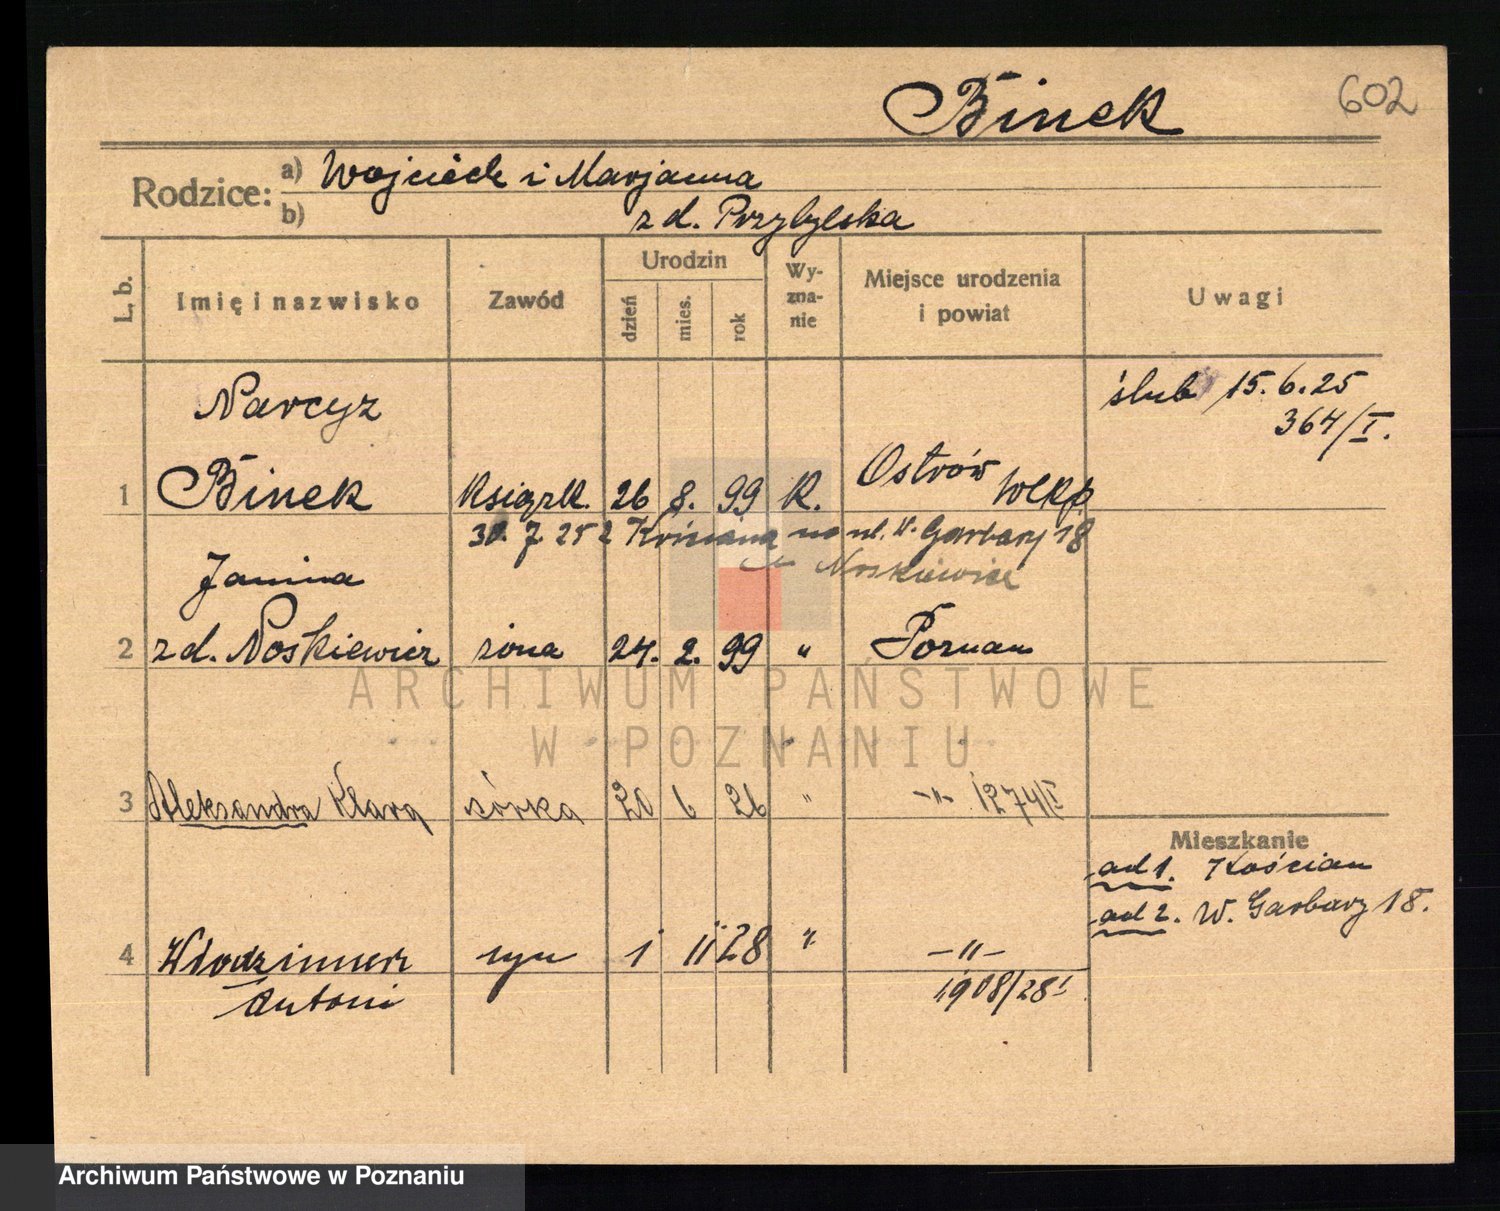 Binek
602
Rodzice: a) Wojciech i Marjanna
b) z d. Przybylska
L. b.
Imię i nazwisko
Zawód
Urodzin
dzień
mies.
rok
Wy-
zna-
nie
Miejsce urodzenia
i powiat
Uwagi
Narcyz
ślub 15.6.25
364/I.
1 Binek Książk. 26 8. 99 K. Ostrów Wlkp
30. 7 25 z Kościana na ul. W. Garbary 18
u Noskiewicz
Janina
2 z d. Noskiewicz żona 24. 2. 99 " Poznan
ARCHIWUM PAŃSTWOWE
W POZNANIU
3 Aleksandra Klara córka 20 6 26 " -"- 1274/I
Mieszkanie
ad 1. Kościan
ad 2. W. Garbary 18.
4 Włodzimierz syn 1 11 28 " -"-
Antoni
1908/28 I
Archiwum Państwowe w Poznaniu